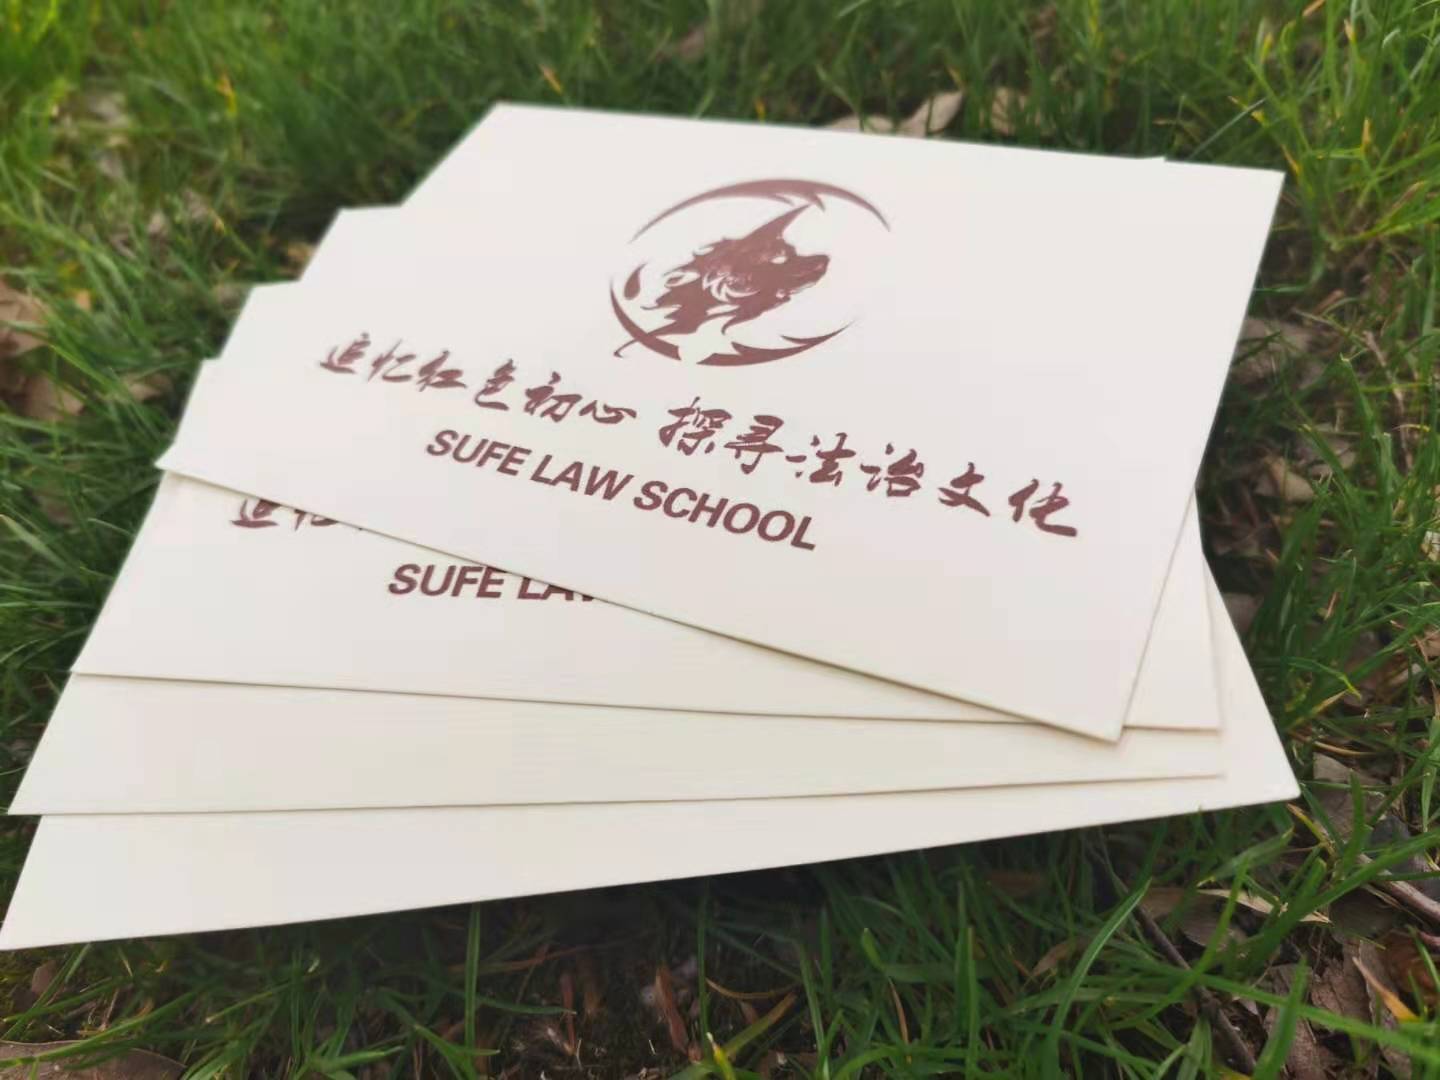 追忆红色初心 探寻法治文化
SUFE LAW SCHOOL
追忆
SUFE LAW